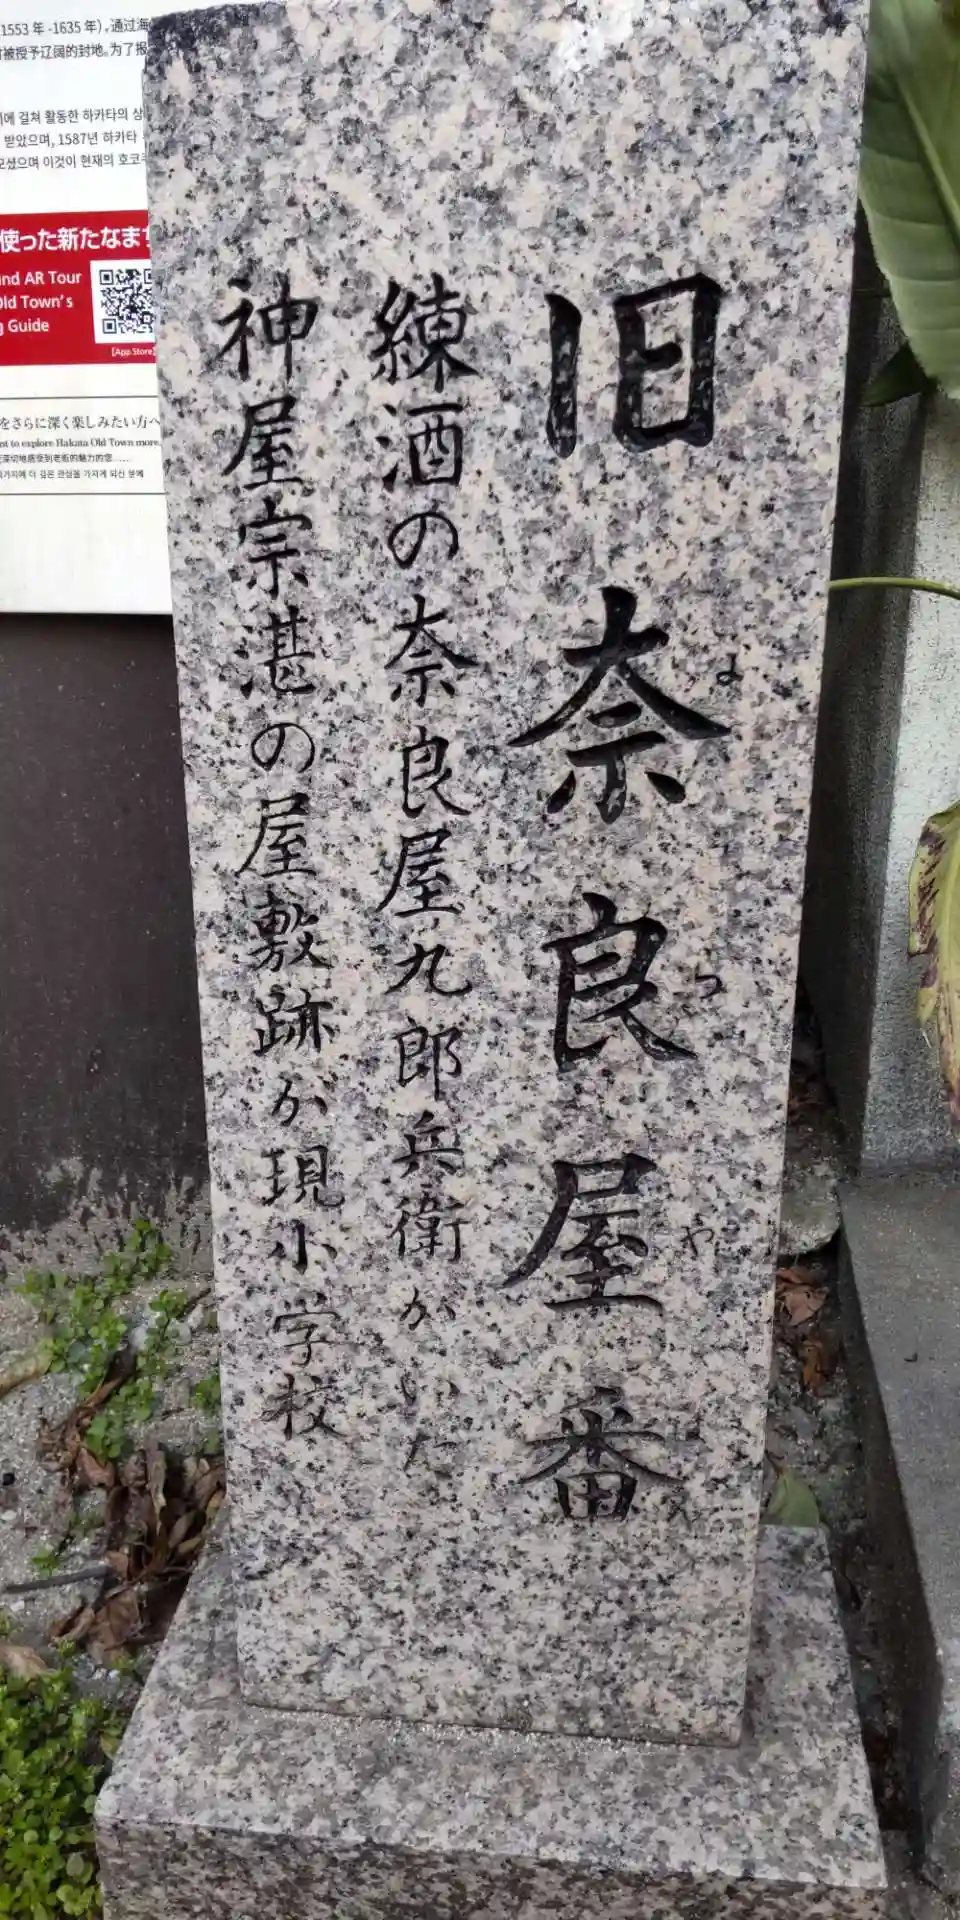 (1553 年 -1635 年),通过海
被授予辽阔的封地。为了报
에 걸쳐 활동한 하카타의 상
받았으며, 1587년 하카타
모셨으며 이것이 현재의 호코
使った新たなまち
nd AR Tour
Old Town's
g Guide
【App Store】
をさらに深く楽しみたい方へ
nt to explore Hakata Old Town more.
旧奈良屋番
練酒の奈良屋九郎兵衛がいた
神屋宗湛の屋敷跡か現小学校